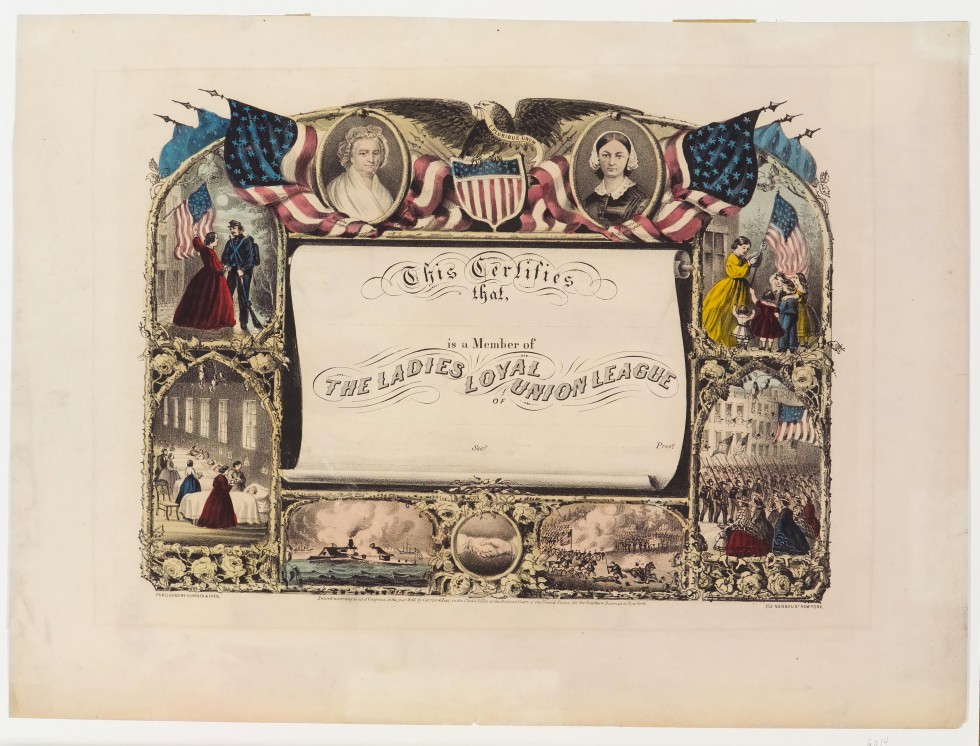 E PLURIBUS UNUM
This Certifies
that,
is a Member of
THE LADIES LOYAL UNION LEAGUE
OF
Secy.
Prest.
PUBLISHED BY CURRIER & IVES,
Entered according to act of Congress, in the year 1863, by Currier & Ives, in the Clerk's Office of the District Court of the United States, for the Southern District of New York.
152 NASSAU ST NEW YORK.